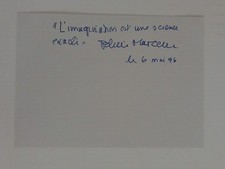 "L'imagination est une science
exacte.
le 6 mai 96